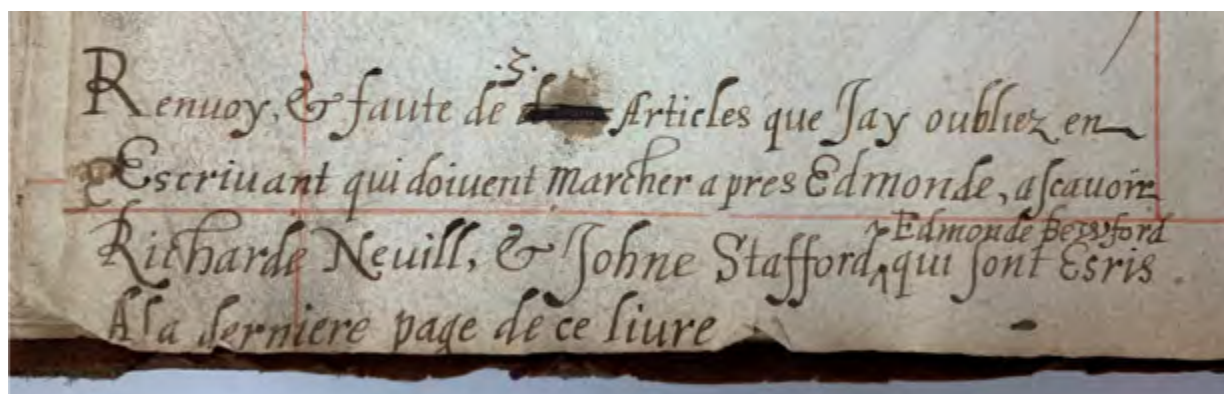 .3.
Renuoy, & faute de Articles que Jay oubliez en
Escriuant qui doiuent marcher apres Edmonde, ascauoir
Edmonde Bewford
Richarde Neuill, & Johne Stafford, qui sont Esris
A la derniere page de ce liure